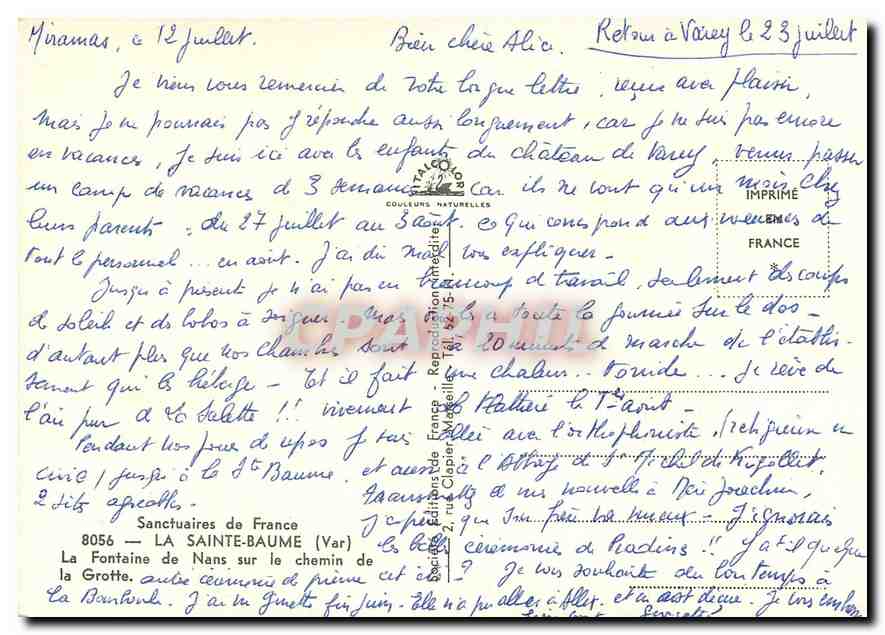 Miramas, le 12 juillet. Bien chère Alice. Retour à Varey le 23 juillet
Je viens vous remercier de votre longue lettre, reçue avec plaisir,
mais je ne pourrais pas y répondre aussi longuement, car je ne suis pas encore
en vacances, je suis ici avec les enfants du château de Varey, venus passer
un camp de vacances de 3 semaines car ils ne vont qu'un mois chez
leurs parents du 27 juillet au août. ce qui correspond aux vacances de
tout le personnel... en août. J'ai dû mal vous expliquer.
Jusqu'à présent je n'ai pas eu beaucoup de travail, seulement des coups
de soleil et des bobos à soigner, mais à toute la journée sur le dos -
d'autant plus que nos chambres sont à 20 minutes de marche de l'établis-
sement qui les héberge - Et il fait une chaleur... torride... je rêve de
l'air pur de La Salette !! vivement le 1er août -
Pendant nos jours de repos je suis allée avec l'orthophoniste, (religieuse en
civil) jusqu'à la Ste Baume, et aussi à l'Abbaye de St Michel de Frigollet,
2 sites agréables.
transmettez de mes nouvelles à Joachim,
que son frère va mieux - J'ignorais
les belles cérémonies de Pradines !! y a t'il quelque
autre cérémonie de cet été ? Je vous souhaite du bon temps à
La Bourboule. J'ai vu Ginette fin juin. Elle n'a pu aller à et en est déçue. Je vous embrasse
ITALCOLOR
COULEURS NATURELLES
IMPRIMÉ
EN
FRANCE
Société Éditions de France - Reproduction interdite
2, rue Clapier, Marseille - Tél. 62-75-
CPAPHIL
Sanctuaires de France
8056 — LA SAINTE-BAUME (Var)
La Fontaine de Nans sur le chemin de
la Grotte.